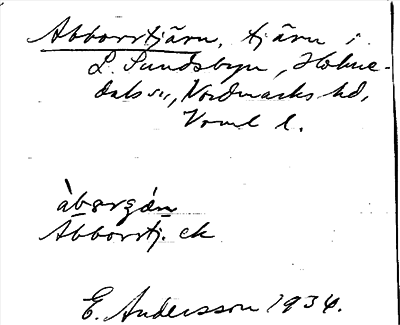 Abborrtjärn, tjärn i
L. Sundsbyn, Holme-
dals sn, Nordmarks hd,
Vrml l.
àbərgán
Abborrtj. ek
E. Andersson 1934.